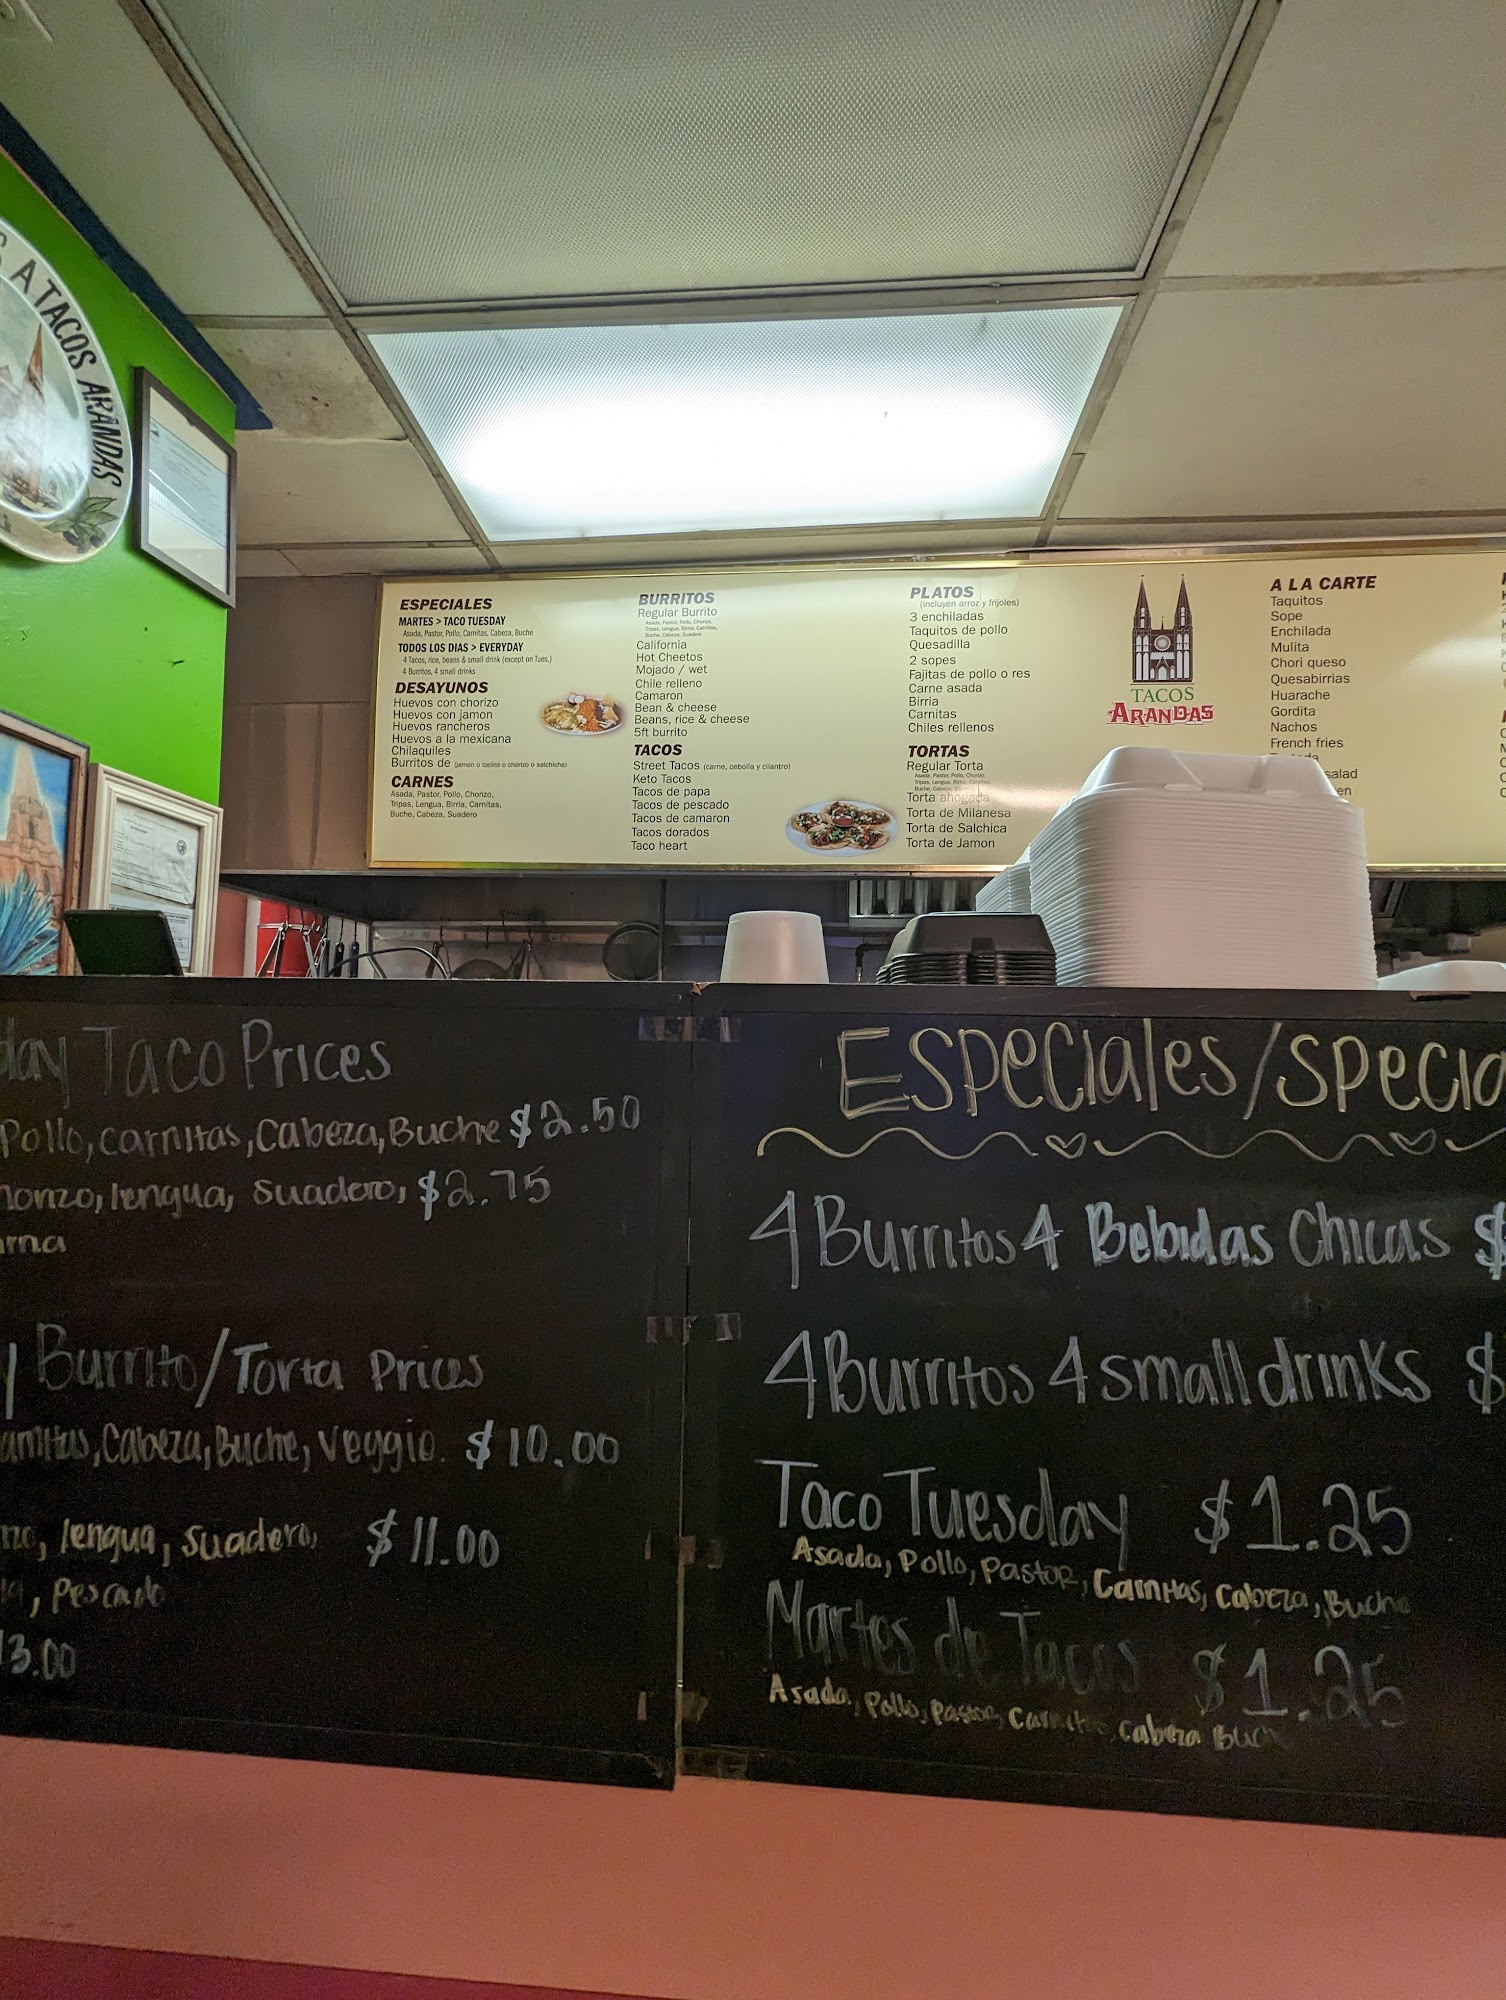 A TACOS ARANDAS
ESPECIALES
MARTES > TACO TUESDAY
Asada, Pastor, Pollo, Carnitas, Cabeza, Buche
TODOS LOS DIAS > EVERYDAY
4 Tacos, rice, beans & small drink (except on Tues.)
4 Burritos, 4 small drinks
DESAYUNOS
Huevos con chorizo
Huevos con jamon
Huevos rancheros
Huevos a la mexicana
Chilaquiles
Burritos de (jamon o tocino o chorizo o salchicha)
CARNES
Asada, Pastor, Pollo, Chorizo,
Tripas, Lengua, Birria, Carnitas,
Buche, Cabeza, Suadero
BURRITOS
Regular Burrito
Asada, Pastor, Pollo, Chorizo,
Tripas, Lengua, Birria, Carnitas,
Buche, Cabeza, Suadero
California
Hot Cheetos
Mojado / wet
Chile relleno
Camaron
Bean & cheese
Beans, rice & cheese
5ft burrito
TACOS
Street Tacos (carne, cebolla y cilantro)
Keto Tacos
Tacos de papa
Tacos de pescado
Tacos de camaron
Tacos dorados
Taco heart
PLATOS
(incluyen arroz y frijoles)
3 enchiladas
Taquitos de pollo
Quesadilla
2 sopes
Fajitas de pollo o res
Carne asada
Birria
Carnitas
Chiles rellenos
TORTAS
Regular Torta
Asada, Pastor, Pollo, Chorizo,
Tripas, Lengua, Birria, Carnitas,
Buche, Cabeza,
Torta ahogada
Torta de Milanesa
Torta de Salchica
Torta de Jamon
TACOS
ARANDAS
A LA CARTE
Taquitos
Sope
Enchilada
Mulita
Chori queso
Quesabirrias
Huarache
Gordita
Nachos
French fries
salad
en
day Taco Prices
Pollo, Carnitas, Cabeza, Buche $2.50
lengua, Suadero, $2.75
Burrito/Torta Prices
Cabeza, Buche, Veggie. $10.00
lengua, Suadero, $11.00
, Pescado
3.00
Especiales/Specia
4 Burritos 4 Bebidas Chicas $
4 Burritos 4 small drinks $
Taco Tuesday $1.25
Asada, Pollo, Pastor, Carnitas, Cabeza, Buche
Martes de Tacos $1.25
Asada, Pollo, Pastor, Carnitas, Cabeza Buch